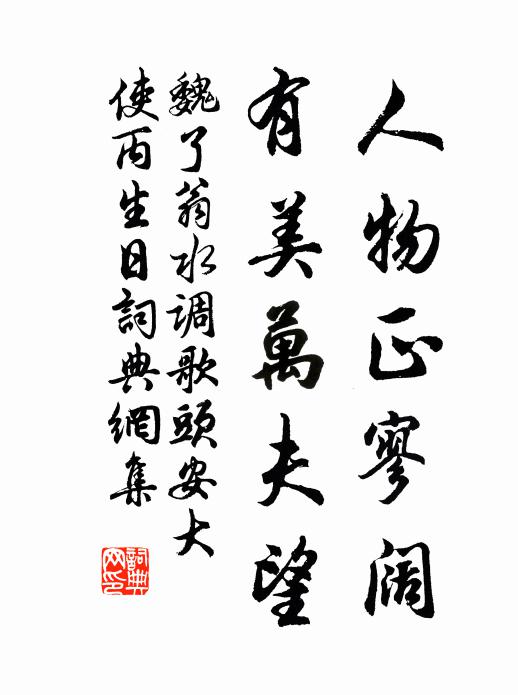 人物正寥阔
有美萬夫望
魏了翁水调歌頭安大
使丙生日詞典網集
詞典
网印